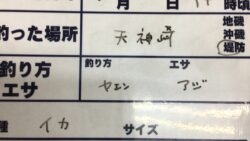 月 日 時頃
釣った場所 天神崎 地磯
沖磯
堤防
釣り方 エサ 釣り方 エサ
ヤエン アジ
種 イカ サイズ